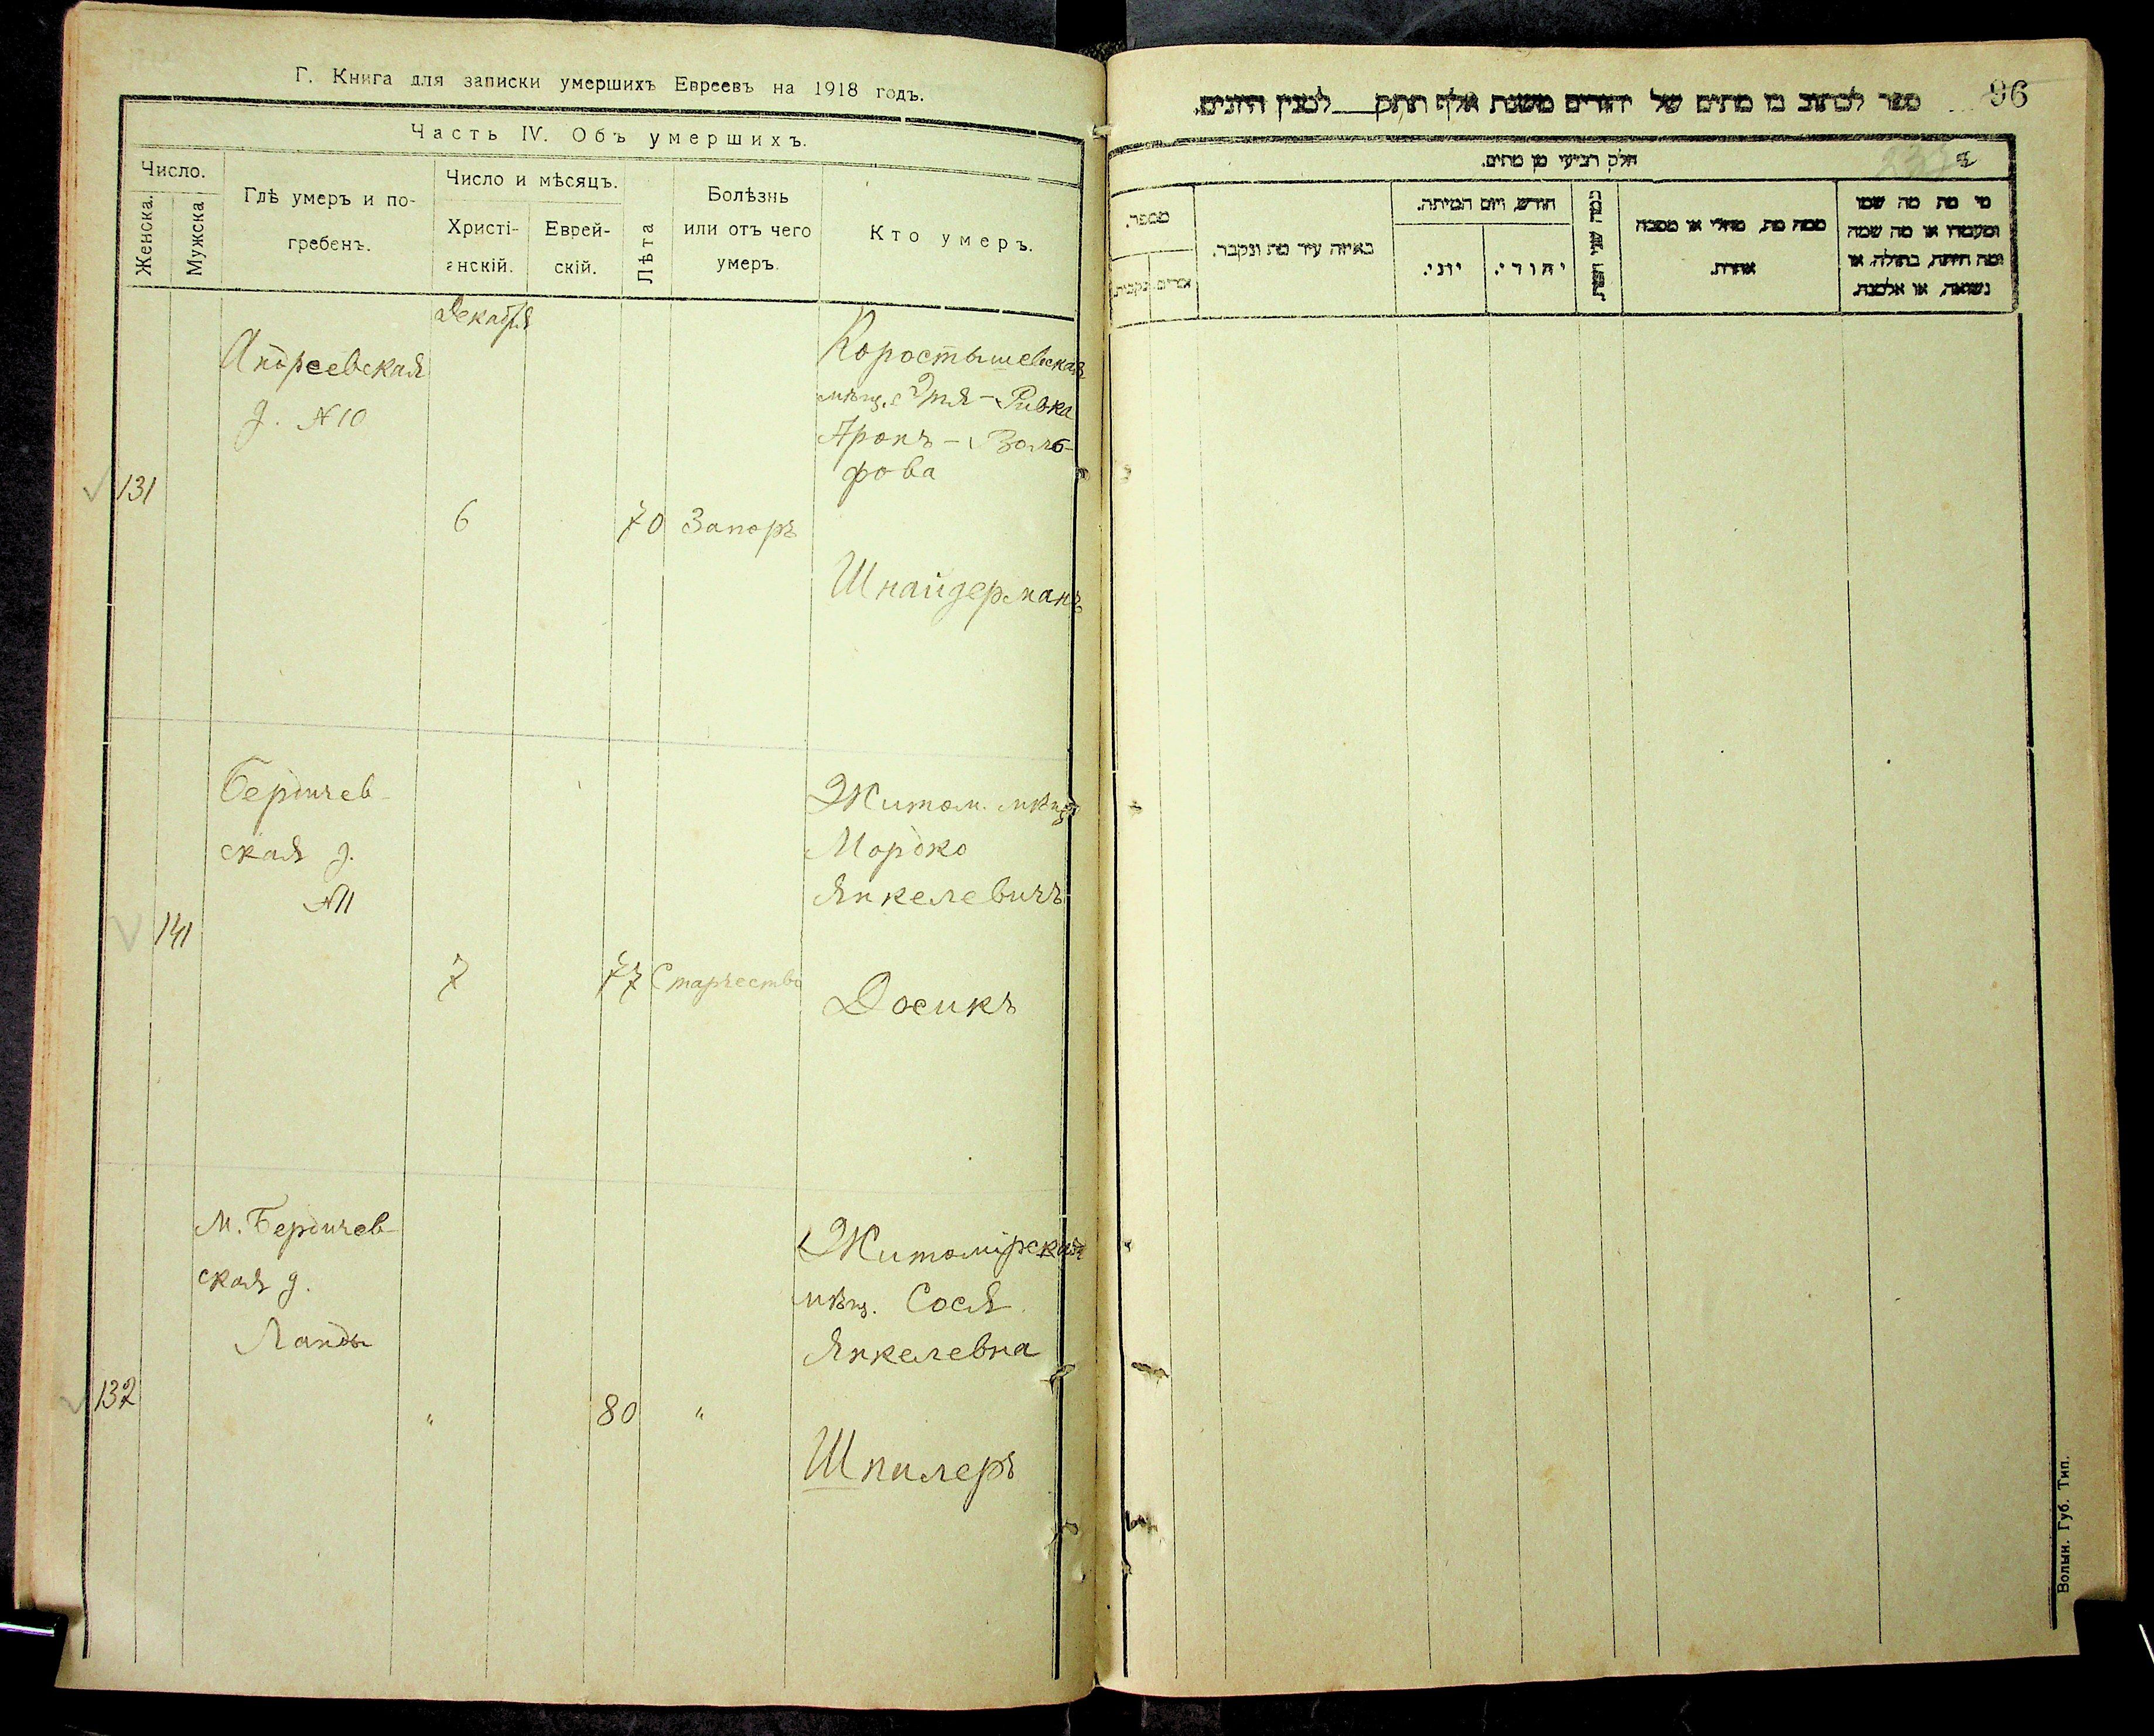 Г. Книга для записки умершихъ Евреевъ на 1918 годъ.
Часть IV. Объ умершихъ.
Число.
Женска.
Мужска
Гдѣ умеръ и по-
гребенъ.
Число и мѣсяцъ.
Христі-
анскій.
Еврей-
скій.
Лѣта
Болѣзнь
или отъ чего
умеръ.
Кто умеръ.
Декабря
Андреевская
д. №10
131
6
70
Запоръ
Коростышевская
мѣщ. Этя-Ривка
Аронъ-Воль-
фова
Шнайдерманъ
Бердичев-
ская д.
№11
141
7
77
Старчество
Житом. мѣщ.
Мордко
Янкелевичъ
Досикъ
М. Бердичев-
ская д.
Ланды
132
"
80
"
Житомірская
мѣщ. Сося
Янкелевна
Шпилеръ
96
ספר לכתוב בו מתים של יהודים משנת אלף תתק לבנין היונים.
חלק רביעי מן מתים.
מספר.
באיזה עיר מת ונקבר.
חודש, ויום המיתה.
יוני.
יהודי.
ממה מת, מחלי או מסבה
אחרת.
מי מת מה שמו
ומעמדו או מה שמה
ומה היתה, בתולה, או
נשואה, או אלמנה.
Волын. Губ. Тип.